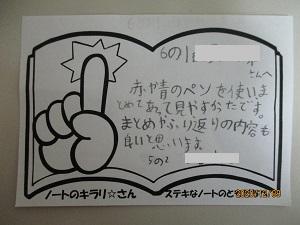 6の1
さんへ
赤・青のペンを使いま
とめてあって見やすかったです。
まとめやふり返りの内容も
良いと思います。
5の2
ノートのキラリ☆さん
ステキなノートのと